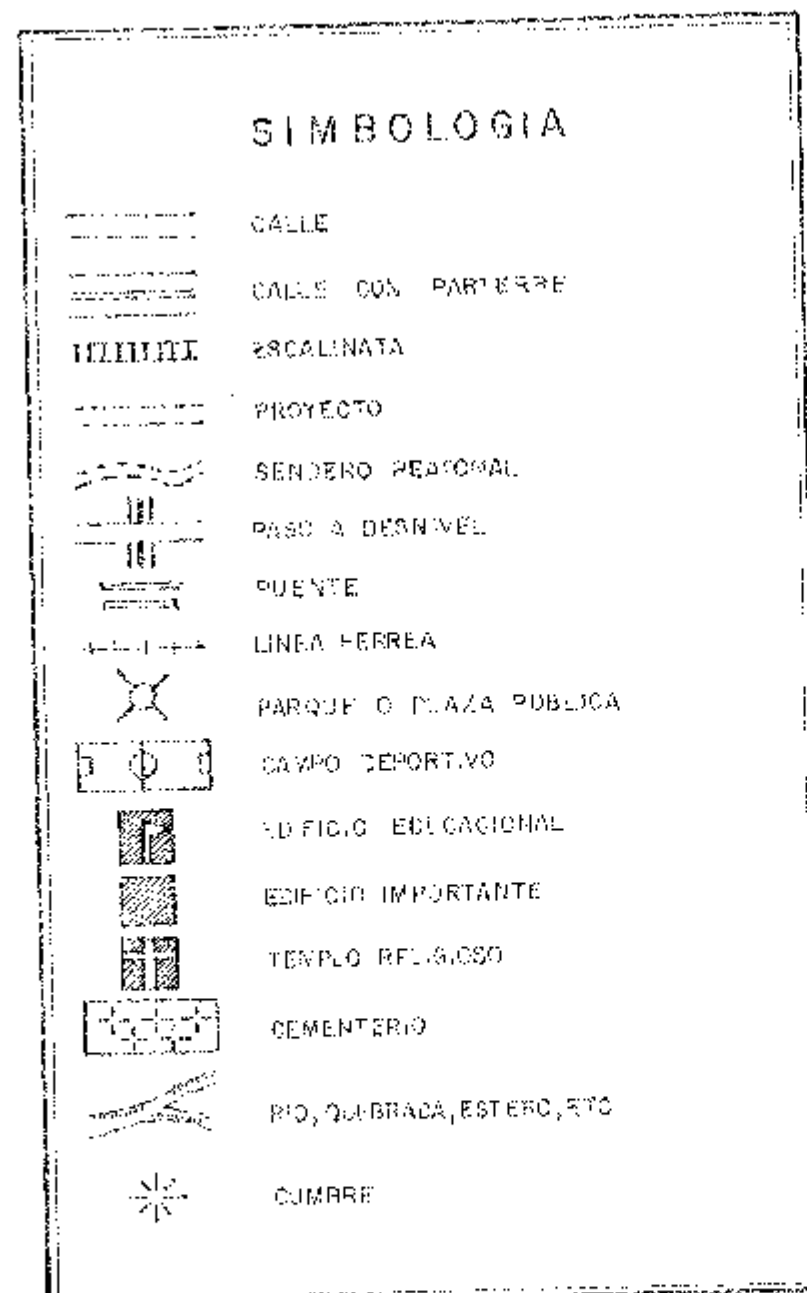 SIMBOLOGIA
CALLE
CALLE CON PARTERRE
ESCALINATA
PROYECTO
SENDERO PEATONAL
PASO A DESNIVEL
PUENTE
LINEA FERREA
PARQUE O PLAZA PUBLICA
CAMPO DEPORTIVO
EDIFICIO EDUCACIONAL
EDIFICIO IMPORTANTE
TEMPLO RELIGIOSO
CEMENTERIO
RIO, QUEBRADA, ESTERO, ETC
CUMBRE